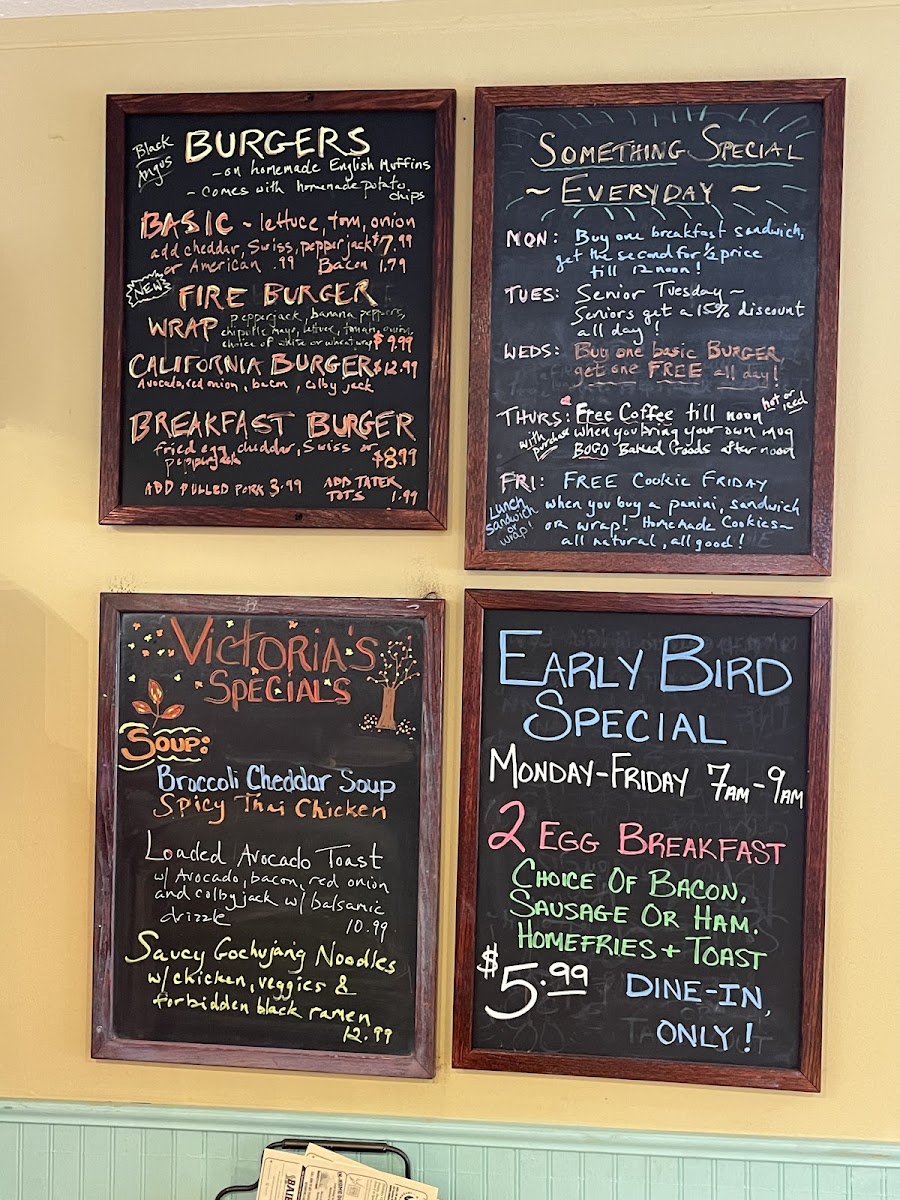 Black
Angus
BURGERS
- on homemade English Muffins
- comes with homemade potato
chips
BASIC - lettuce, tom, onion
add cheddar, Swiss, pepper jack $7.99
or American .99 Bacon 1.79
NEW
FIRE BURGER
WRAP
pepperjack, banana peppers,
chipotle mayo, lettuce, tomato, onion,
choice of white or wheat wrap $9.99
CALIFORNIA BURGER $12.99
Avocado, red onion, bacon, colby jack
BREAKFAST BURGER
fried egg, cheddar, Swiss or
pepperjack $8.99
ADD PULLED PORK 3.99 ADD TATER
TOTS 1.99
SOMETHING SPECIAL
~ EVERYDAY ~
MON: Buy one breakfast sandwich,
get the second for ½ price
till 12 noon!
TUES: Senior Tuesday~
Seniors get a 15% discount
all day!
WEDS: Buy one basic BURGER,
get one FREE all day!
THURS: Free Coffee till noon hot or
iced
with
purchase
when you bring your own mug
BOGO Baked Goods after noon
FRI: FREE Cookie FRIDAY
Lunch
Sandwich
or
wrap!
when you buy a panini, sandwich
or wrap! Homemade Cookies~
all natural, all good!
VICTORIA'S
SPECIALS
SOUP:
Broccoli Cheddar Soup
Spicy Thai Chicken
Loaded Avocado Toast
w/ Avocado, bacon, red onion
and colby jack w/ balsamic
drizzle 10.99
Saucy Gochujang Noodles
w/ chicken, veggies &
forbidden black ramen
12.99
EARLY BIRD
SPECIAL
MONDAY-FRIDAY 7AM-9AM
2 EGG BREAKFAST
CHOICE OF BACON,
SAUSAGE OR HAM.
HOMEFRIES + TOAST
$5.99 DINE-IN
ONLY!